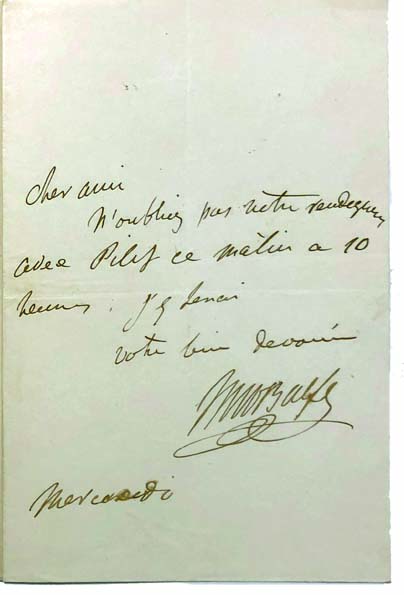 Cher ami
N'oubliez pas votre rendezvous
avec Pilet ce matin a 10
heures. J'y serai
votre bien devoué
MWBalfe
Mercredi